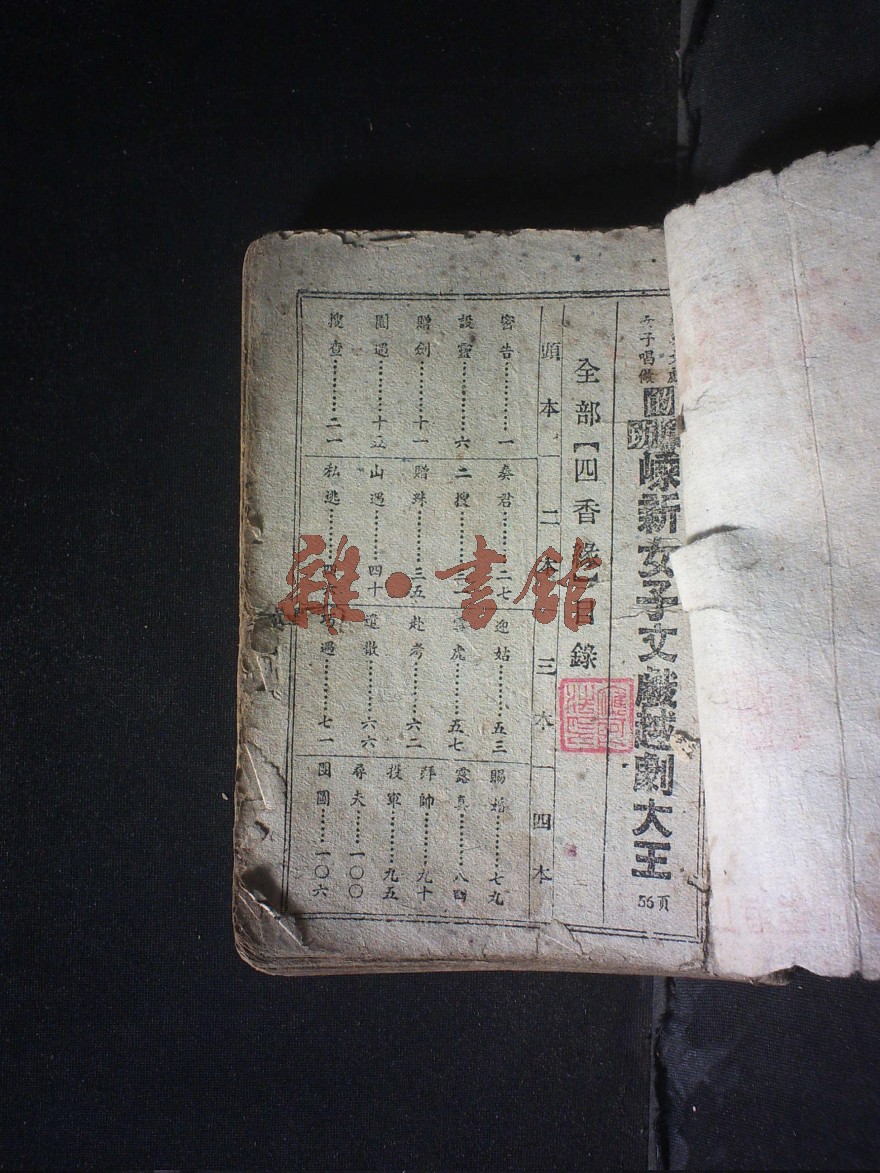 子唱做
嵊新女子文戲越劇大王
56頁
全部【四香 】目錄
頭本
密告⋯⋯一
設靈⋯⋯六
贈劍⋯⋯十一
園遇⋯⋯十五
搜查⋯⋯二一
二本
奏君⋯⋯二七
二搜⋯⋯三
贈珠⋯⋯三五
山遇⋯⋯四十
私逃⋯⋯四
三本
迎姑⋯⋯五三
虎⋯⋯五七
赴考⋯⋯六二
遣散⋯⋯六六
巧遇⋯⋯七一
四本
賜婚⋯⋯七九
露真⋯⋯八四
拜帥⋯⋯九十
投軍⋯⋯九五
尋夫⋯⋯一〇〇
團圓⋯⋯一〇六
雜·書館